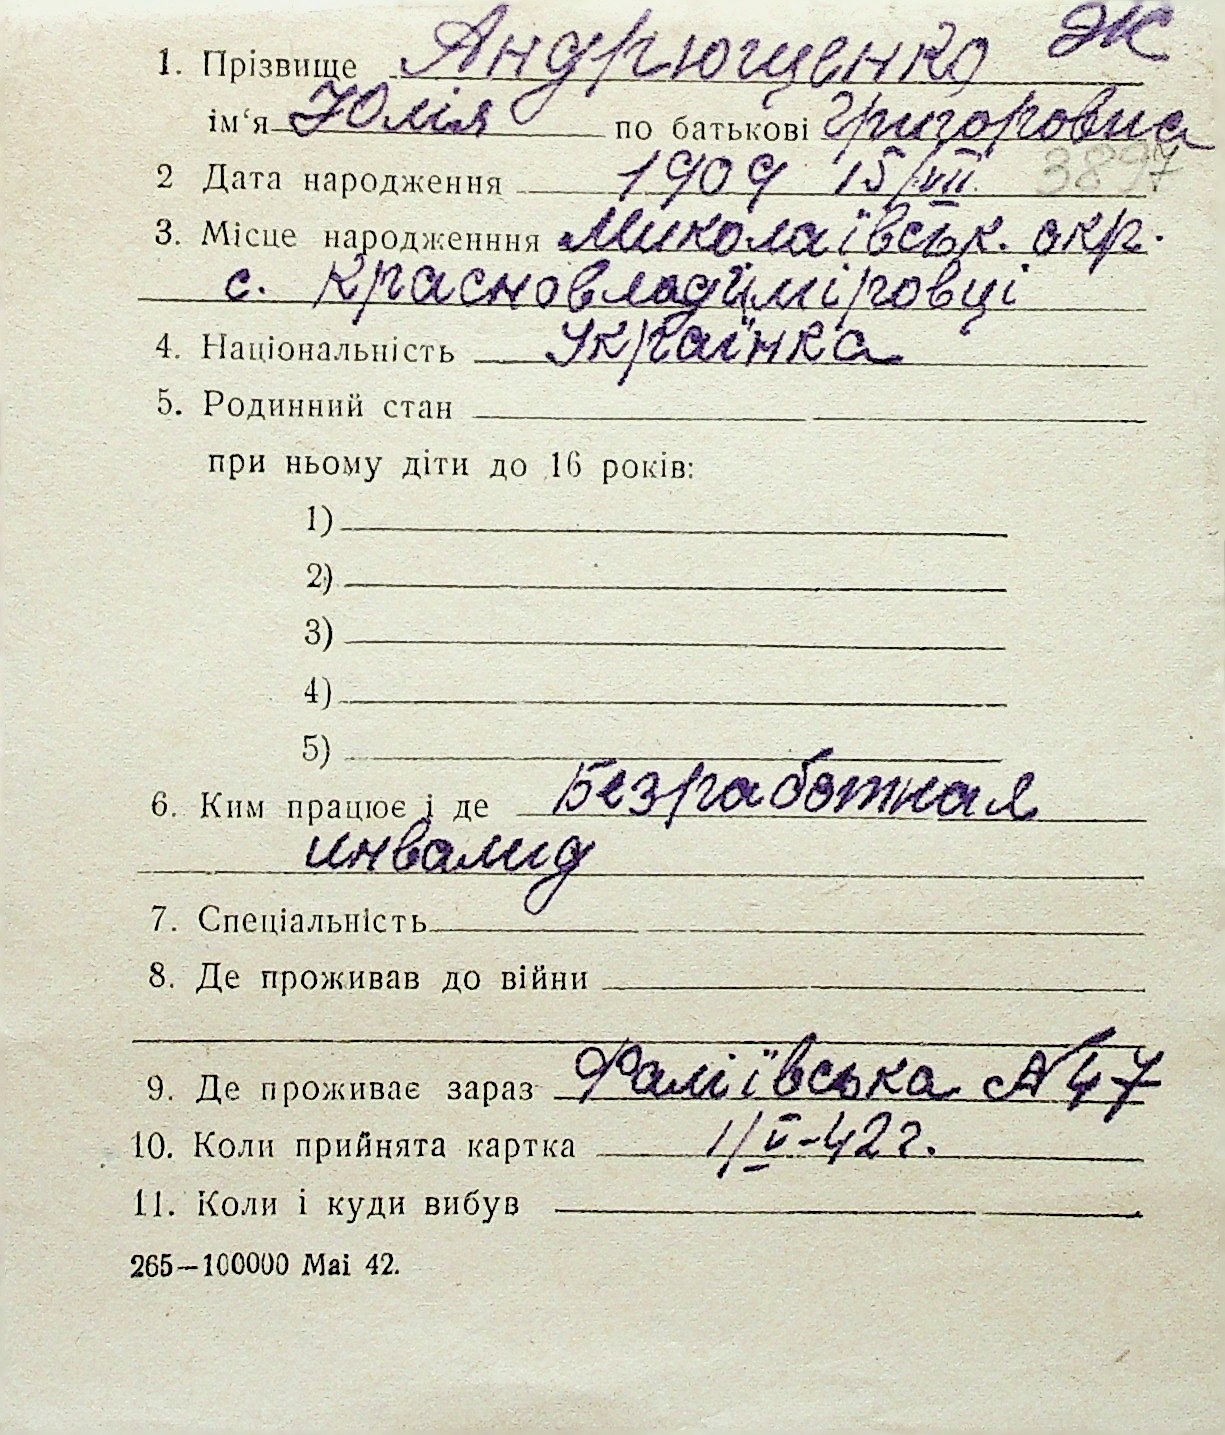 1. Прізвище Андрющенко Ж
ім‘я Юлія по батькові Григоровна
2 Дата народження 1909 15/VII 3897
3. Місце народженння Миколаївськ. окр.
с. Красновладіміровці
4. Національність Українка
5. Родинний стан
при ньому діти до 16 років:
1)
2)
3)
4)
5)
6. Ким працює і де Безработная
инвалид
7. Спеціальність
8. Де проживав до війни
9. Де проживає зараз Фаліївська № 47
10. Коли прийнята картка 1/V-42 г.
11. Коли і куди вибув
265—100000 Mai 42.